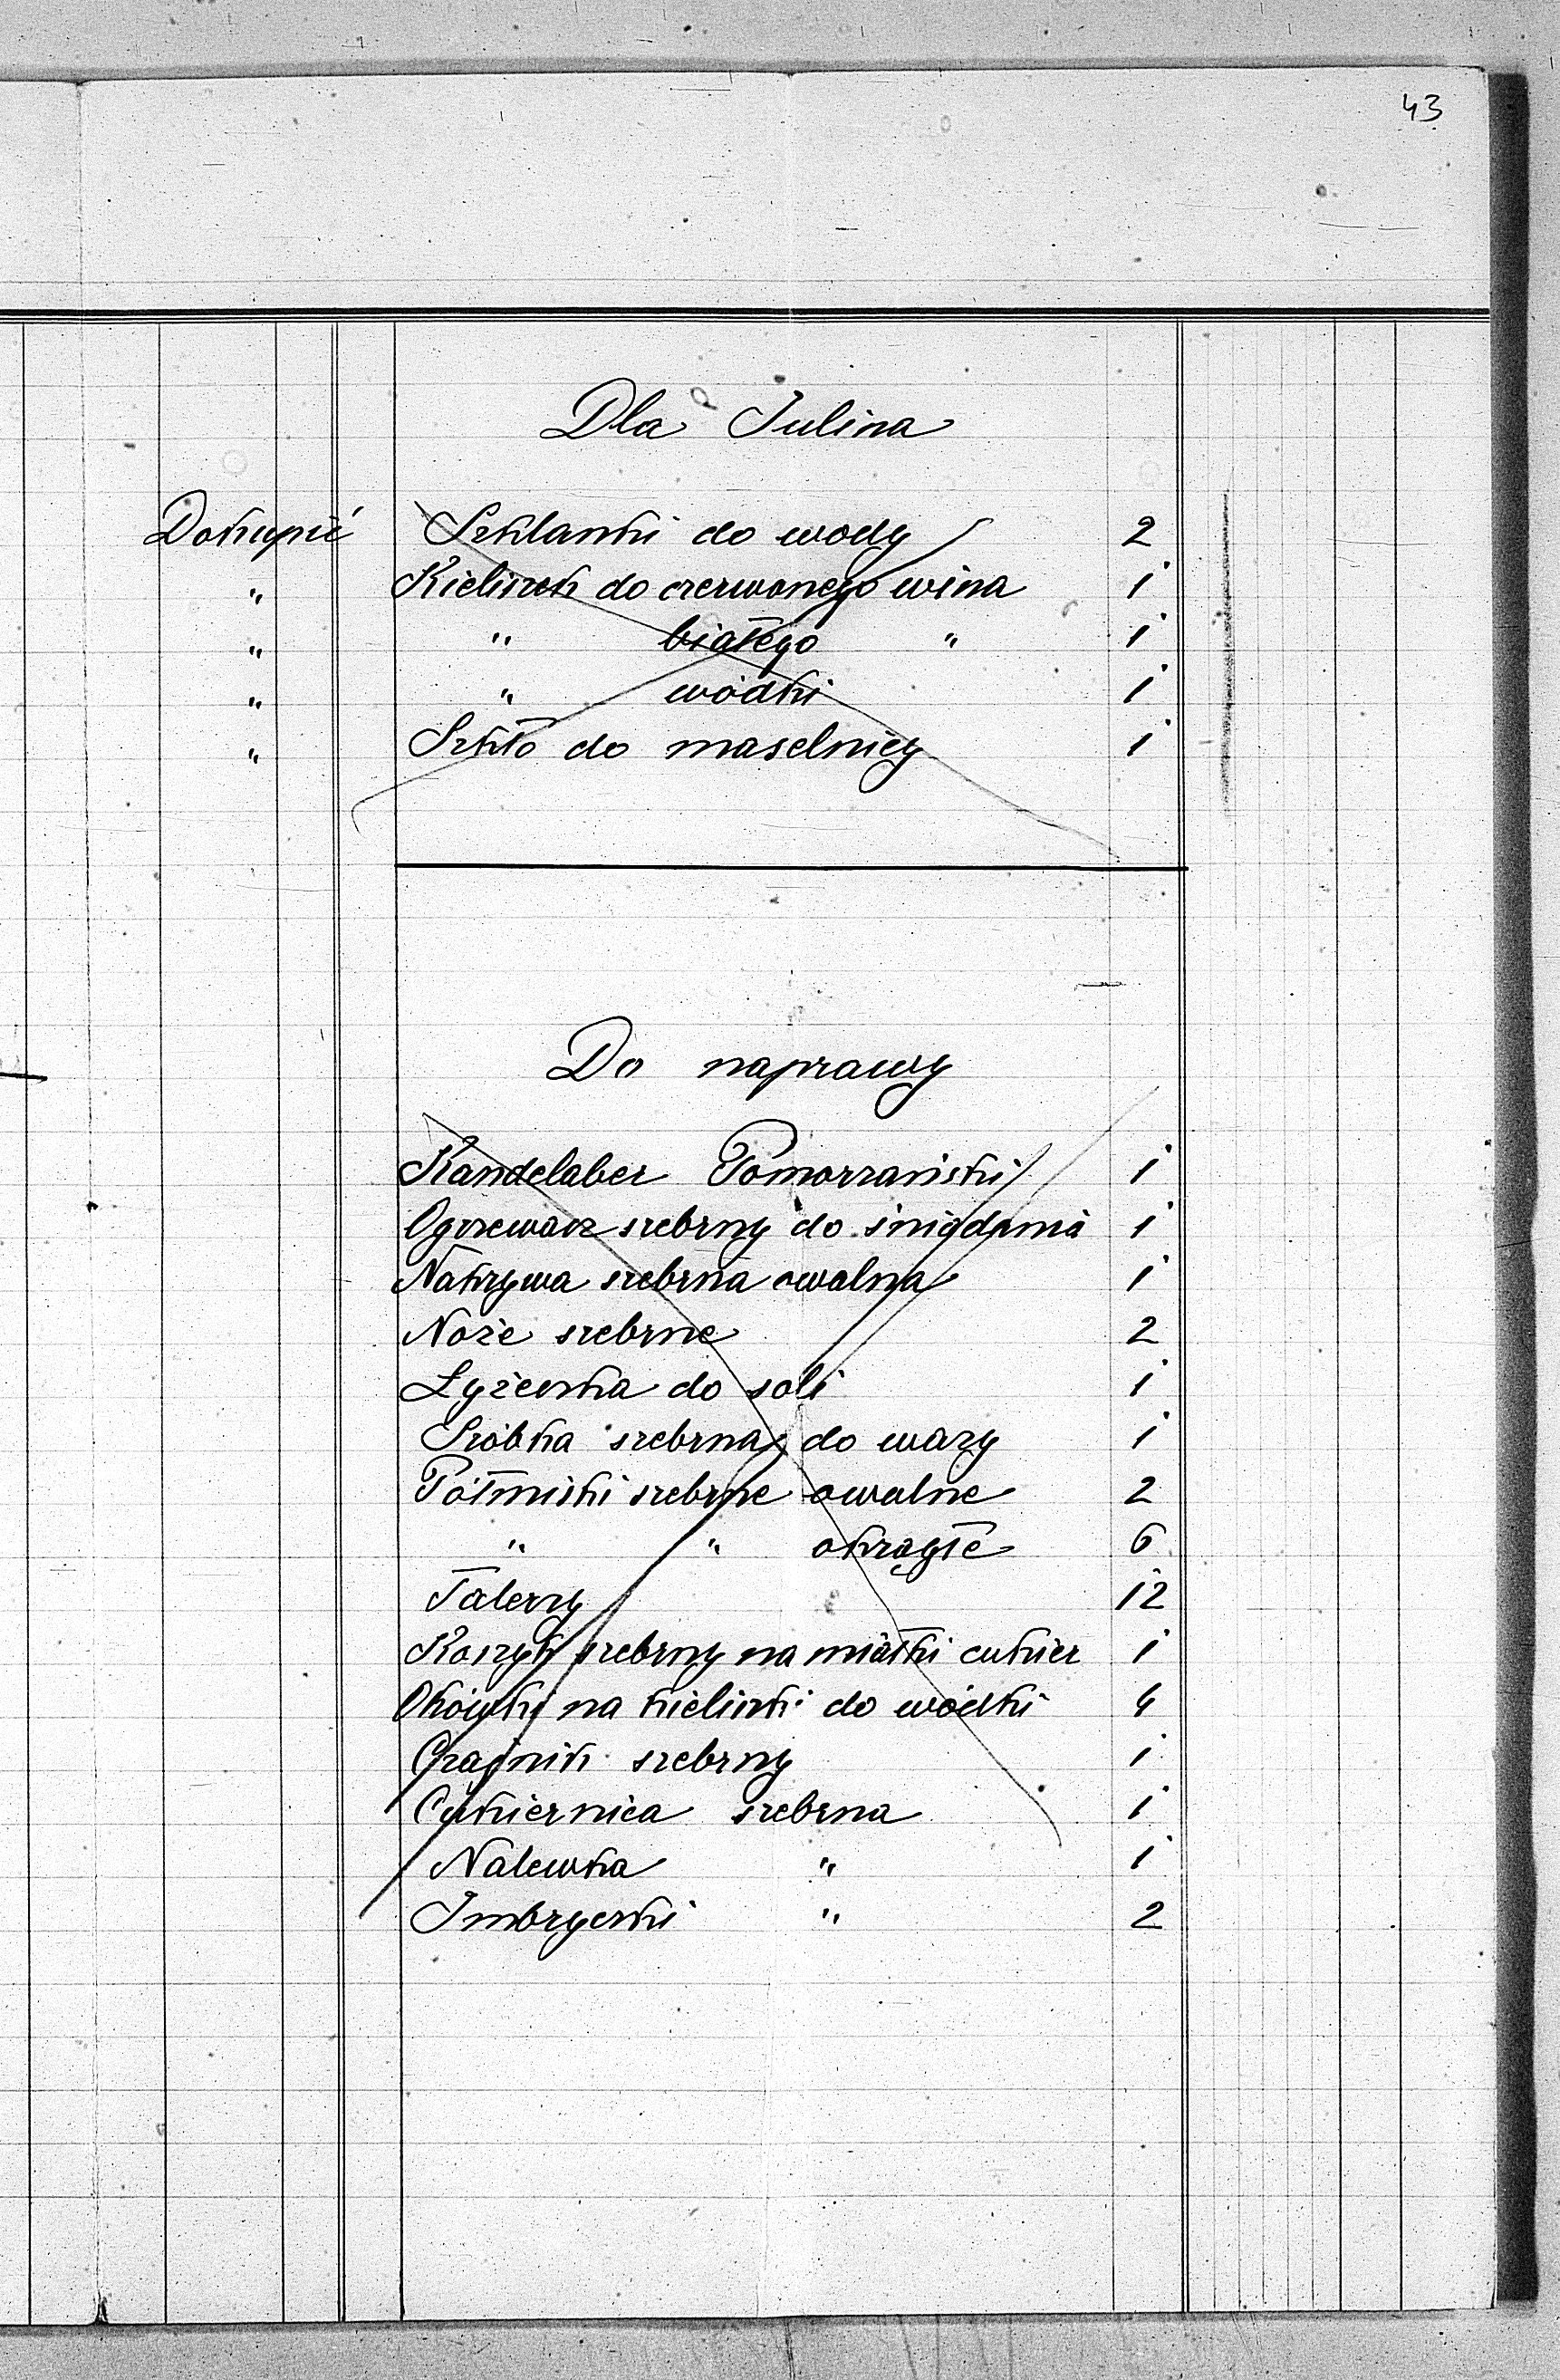 43
Dla Julina
Dokupić Szklanki do wody 2
" Kieliszek do czerwonego wina 1
" " białego " 1
" " wódki 1
" Szkło do maselnicy 1
Do naprawy
Kandelaber Pomorzański 1
Ogrzewacz srebrny do śniądania 1
Nakrywa srebrna owalna 1
Noże srebrne 2
Łyżeczka do soli 1
Szóbka srebrna do wazy 1
Półmiski srebrne owalne 2
" " okrągłe 6
Talerzy 12
Koszyk srebrny na miałki cukier 1
Okówki na kieliszki do wódki 4
Czajnik srebrny 1
Cukiernica srebrna 1
Nalewka " 1
Imbryczki " 2